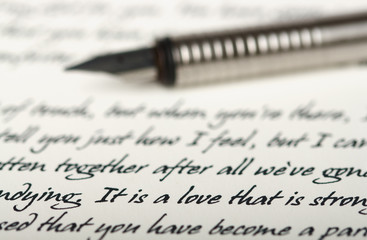 of touch, but when you're there, I
tell you just how I feel, but I can
otten together after all we've gon
ndying. It is a love that is strong
sed that you have become a par